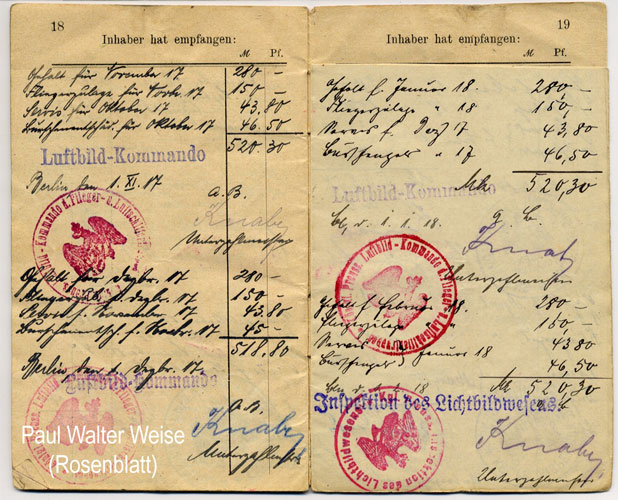 18
Inhaber hat empfangen:
M Pf.
Gehalt für November 17 280 –
Fliegerzulage für Novbr 17 150 –
Servis für Oktober 17 43.80
für Oktober 17 46.50
520.30
Luftbild-Kommando
Berlin den 1. XI. 17
a. B.
Knab
Unterzahlmeister
Gehalt für Dezbr. 17 280 –
Fliegerzul. f. Dezbr. 17 150 –
Servis f. November 17 43.80
f. Novbr. 17 45 –
518.80
Berlin den 1. Dezbr. 17.
Luftbild-Kommando
a. B.
Knab
Unterzahlmeister
Paul Walter Weise
(Rosenblatt)
19
Inhaber hat empfangen:
M Pf.
Gehalt f. Januar 18. 280, –
Fliegerzulage " 18 150, –
Servis f. Dez. 17 43,80
" 17 46,50
Mk 520,30
Luftbild-Kommando
1. 1. 18.
Knab
Unterzahlmeister
Gehalt f. Februar 18 280 –
Fliegerzulage " 150 –
Servis 43 80
Januar 18 46,50
Mk 520 30
18
Inspektion des Lichtbildwesens.
Knab
Unterzahlmeister